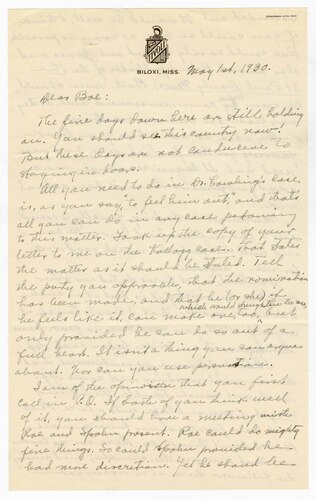 TIVOLI
BILOXI, MISS.
May 1st, 1930.
Dear Boe:
The fine days down here are still holding
on. You should see this country now!
But these days are not conducive to
staying in doors.
All you need to do in Dr. Cowling's case,
is, as you say, to "feel him out," and that's
all you can do in any case pertaining
to this matter. Look up the copy of your
letter to me on the Kellogg case. That states
the matter as it should be stated. Tell
the party you approach, that the nomination
has been made, and that he (or she) if
he feels like it, can make one, too, but
only provided he can do so out of a
full heart. It isn't a thing you can argue
about. Nor can you use persuasion.
I am of the opinion that you first
call in P.O. If both of you think well
of it, you should have a meeting with
Roe and Spohn present. Roe could do mighty
fine things. So could Spohn provided he
had more discretion. Yet he should be